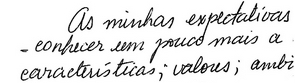 As minhas expectativas
- conhecer um pouco mais a
características; valores; ambi